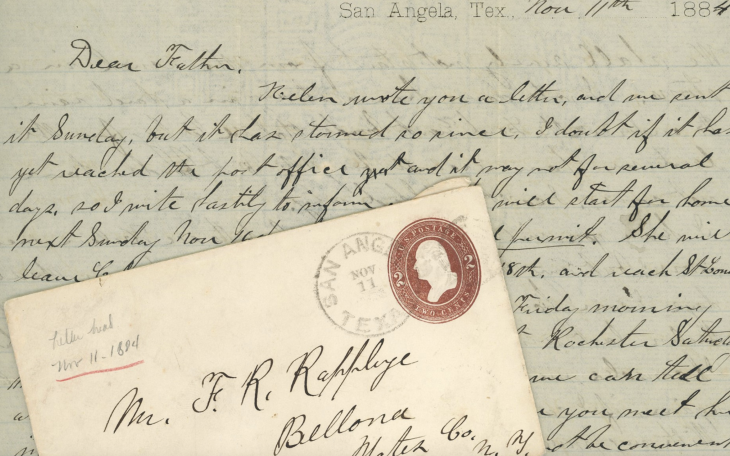 San Angela, Tex., Nov 11th 1884
Dear Father,
Helen wrote you a letter, and we sent
it Sunday, but it has stormed so since, I doubt if it has
yet reached the post office yet and it may not for several
days, so I write hastily to inform will start for home
next Sunday Nov permit. She will
leave 18th, and reach St Lou
Friday morning
Rochester Saturda
we can tell
you meet h
not be convenient
SAN ANGE
NOV
11
TEXA
U.S. POSTAGE
2 2
TWO CENTS
Nov 11-1884
Mr. F. R. Rappleye
Bellona
Yates Co.
N. Y.